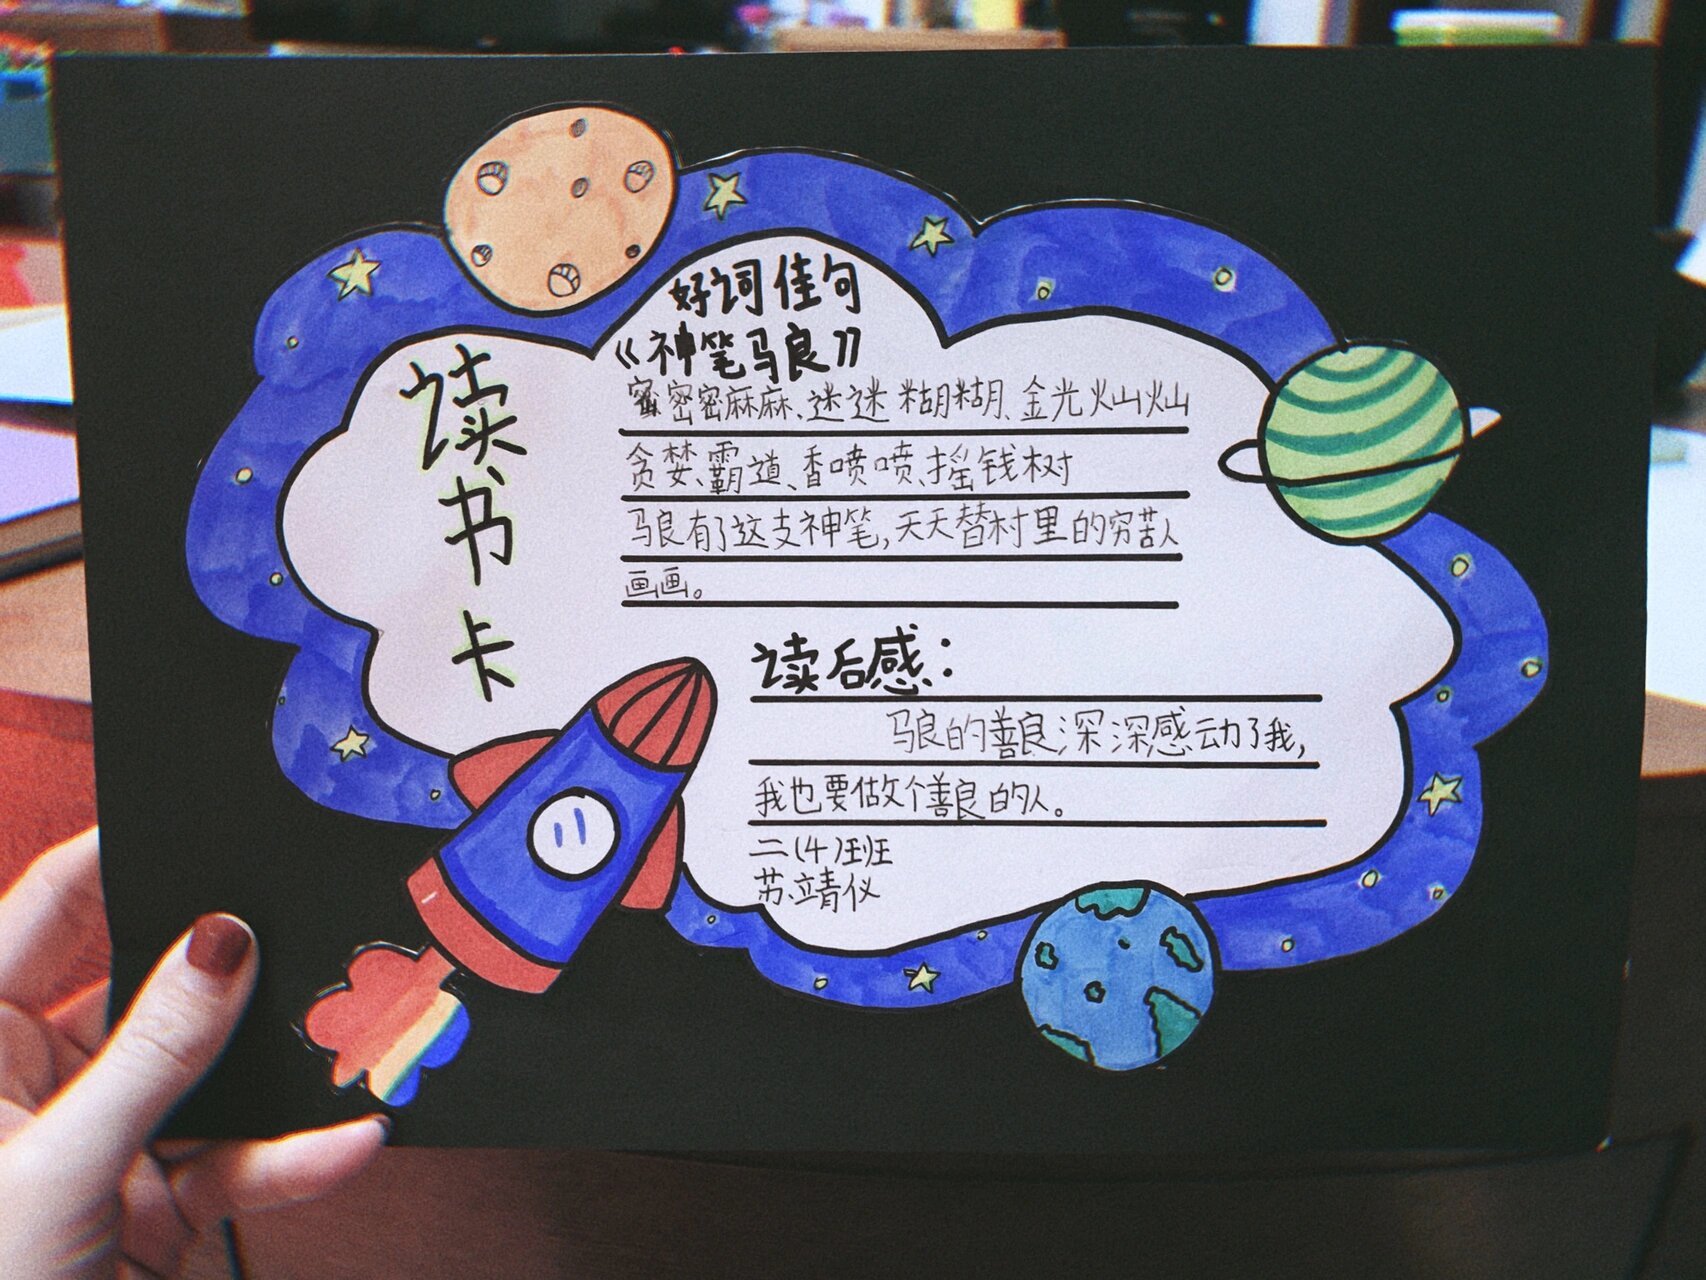 读书卡
好词佳句
《神笔马良》
密密密麻麻、迷迷糊糊、金光灿灿
贪婪、霸道、香喷喷、摇钱树
马良有了这支神笔,天天替村里的穷苦人
画画。
读后感:
马良的善良深深感动了我,
我也要做个善良的人。
二(4)班
苏靖仪